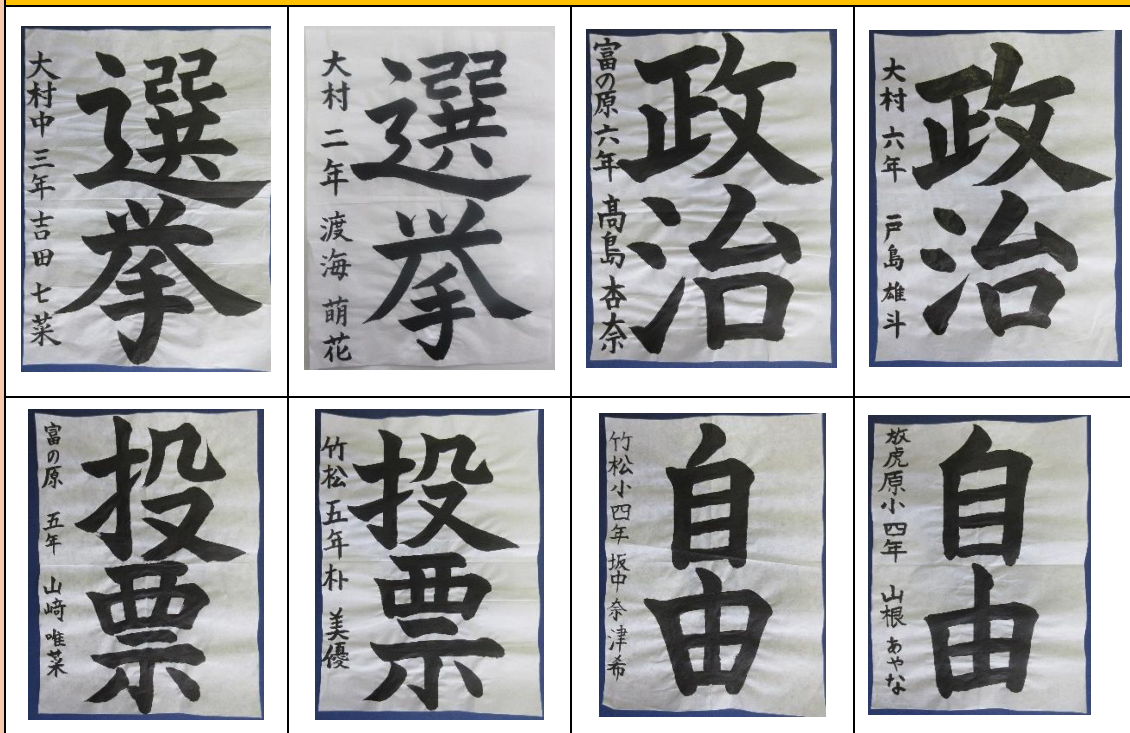 選挙
大村中 三年 吉田 七菜
選挙
大村 二年 渡海 萌花
政治
富の原 六年 髙島 杏奈
政治
大村 六年 戸島 雄斗
投票
富の原 五年 山﨑 唯菜
投票
竹松 五年 朴 美優
自由
竹松小 四年 坂中 奈津希
自由
放虎原小 四年 山根 あやな